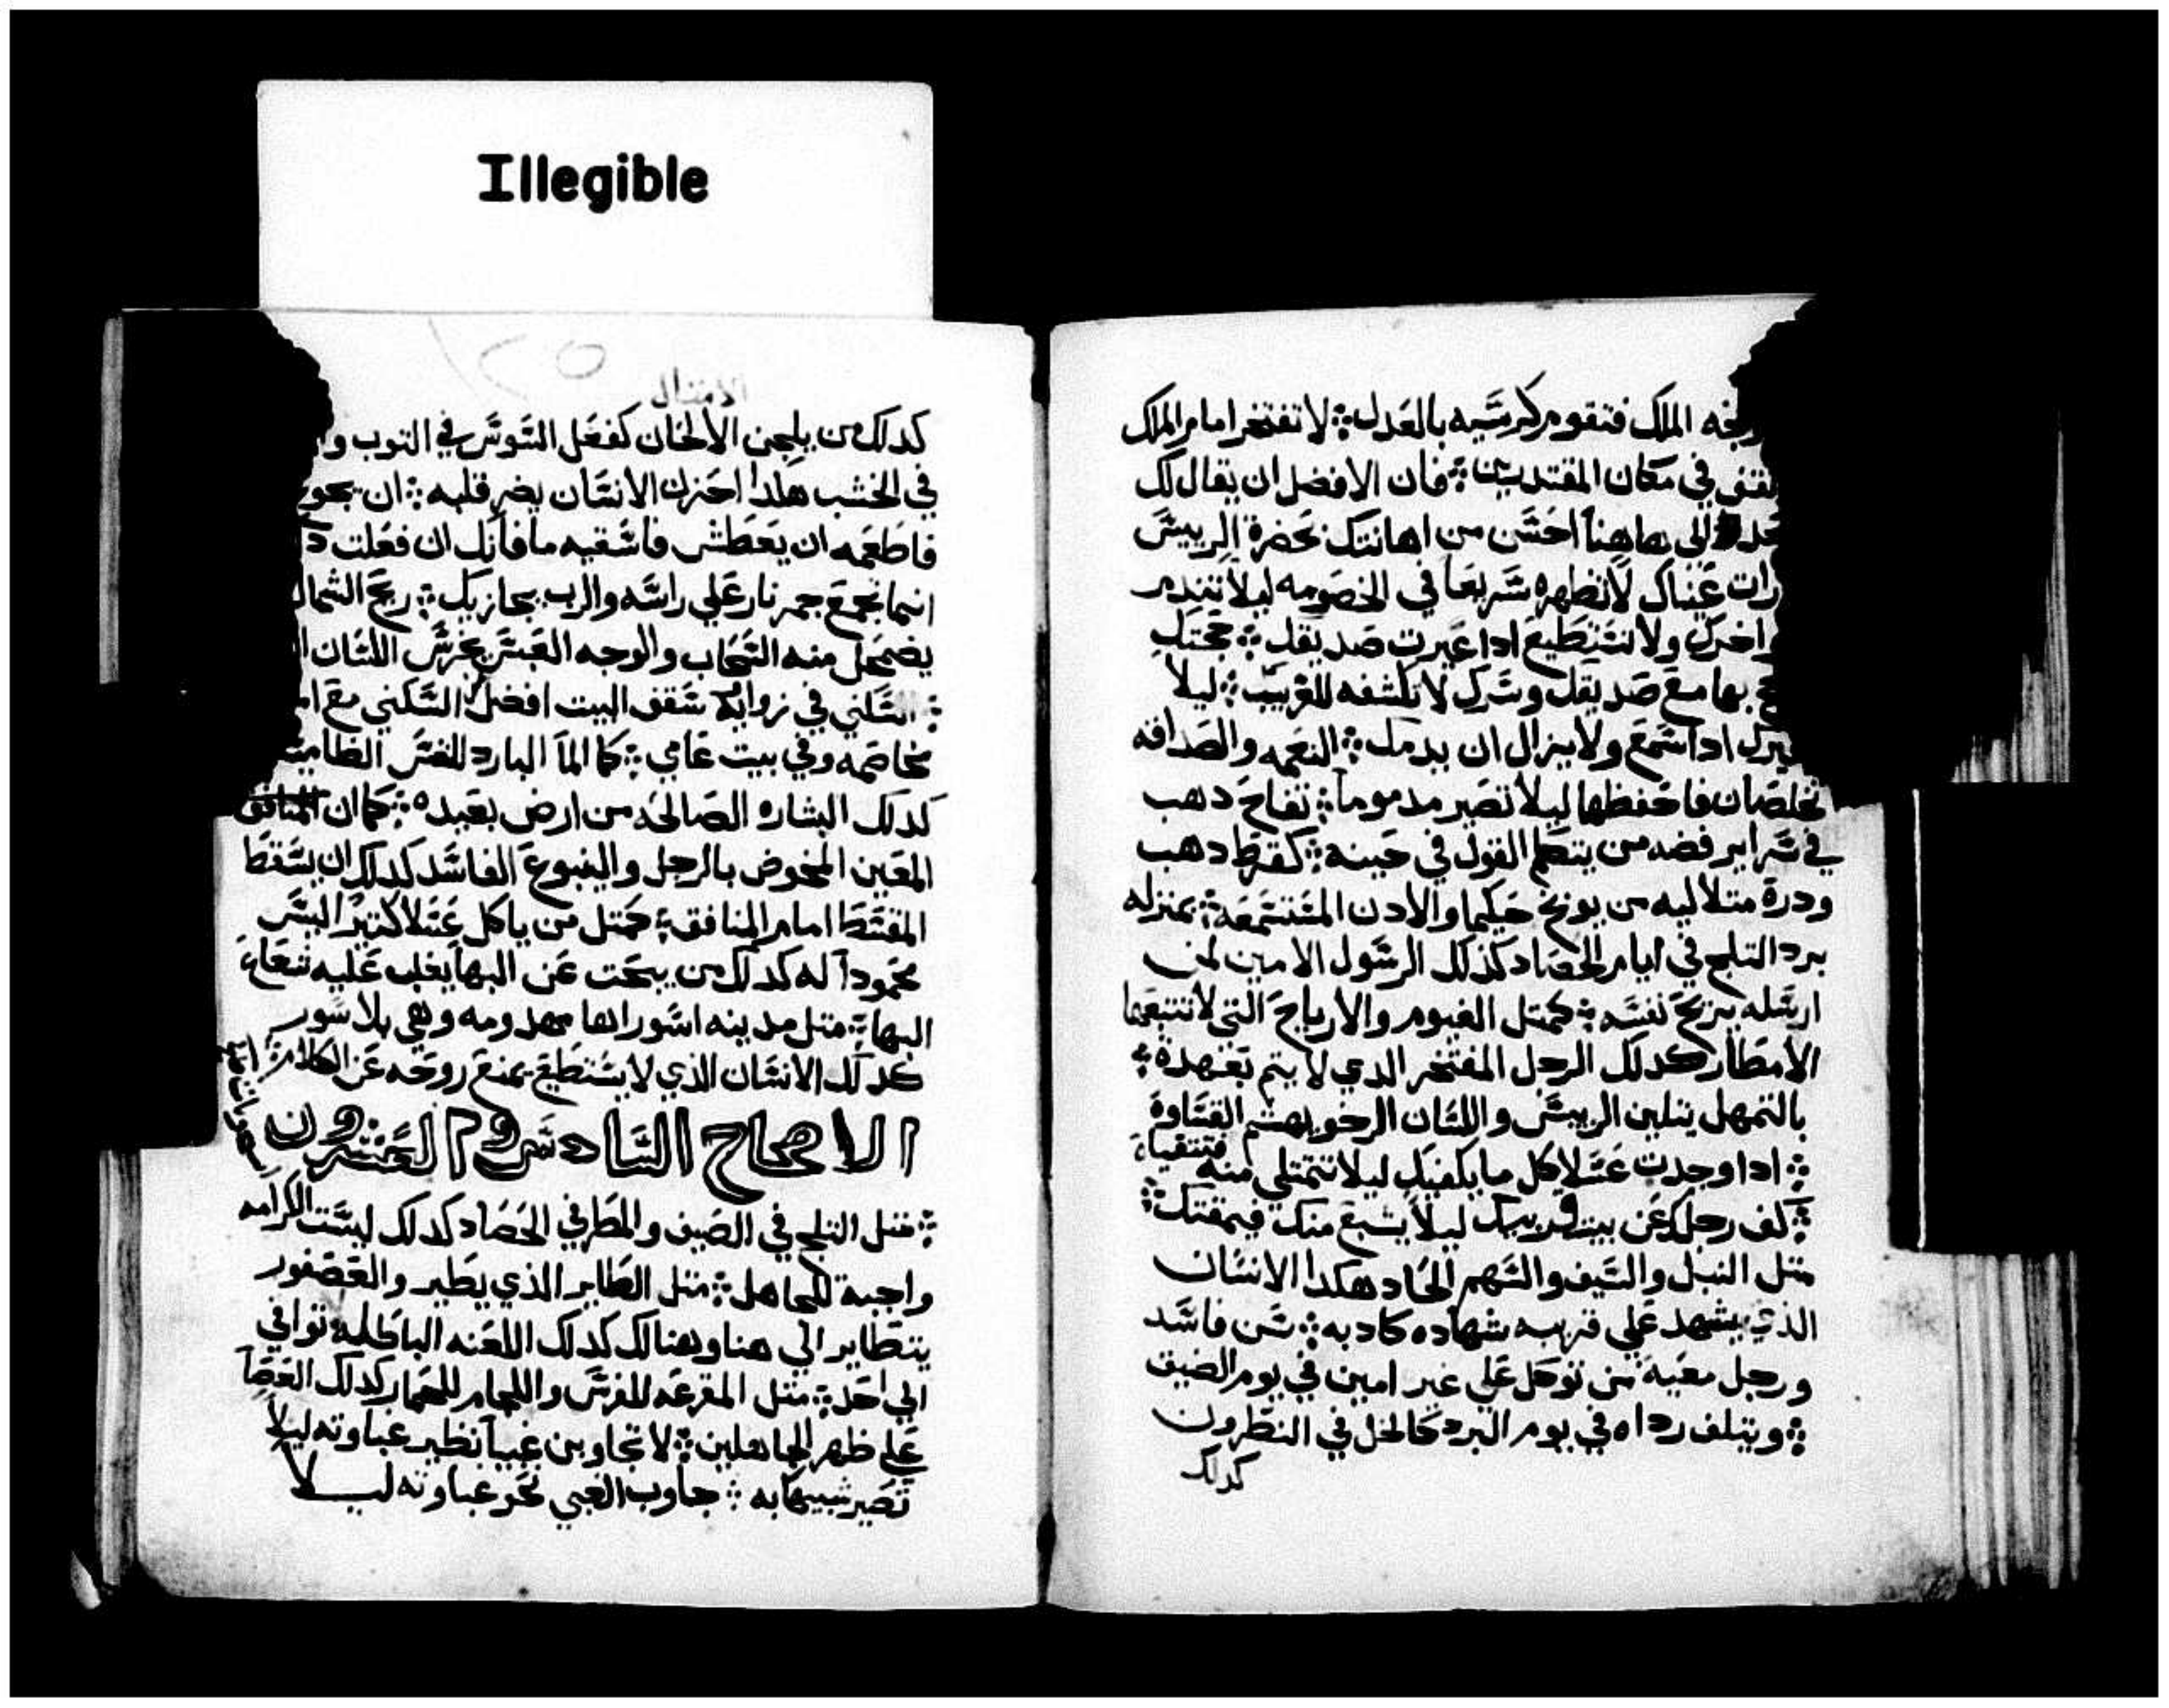 Illegible
الملك فتقوم كرسيه بالعدل لا تفتخر امام الملك
في مكان المقتدرين فان الافضل ان يقال لك
الى هاهنا احسن من اهانتك بحضرة الرييس
عيناك لا تظهره سريعا في الخصومه ليلا تندم
ولا تستطيع ادا عيرت صديقك حجتك
بها مع صديقك وسرك لا تكشفه للغريب ليلا
ادا سمع ولا يزال ان يدمك النعمه والصداقه
يخلصان فاحفظها ليلا تصير مدموما تفاح دهب
في سراير فضه من يتكلم القول في حينه كقرط دهب
ودرة متلاليه من يوبخ حكيما والادن المستسمعه بمنزله
برد التلج في ايام الحصاد كذلك الرسول الامين لمن
ارسله يريح نفسه كمتل الغيوم والارياح التي لا تتبعها
الامطار كدلك الرجل المفتخر الدي لا يتم تعهدة
بالتمهل يتلين الرييس واللسان الرخو يهشم القساوة
ادا وجدت عسلا كل ما يكفيك ليلا تتمتلي منه فتتقياء
كف رجلك عن بيت قريبك ليلا يشبع منك فيمقتك
متل النبل والسيف والسهم الحاد هكدا الانسان
الذي يشهد علي قريبه شهاده كادبه سن فاسد
ورجل معيه من توكل علي غير امين في يوم الضيق
ويتلف رداه في يوم البرد كالخل في النطرون
كدلك
الامتال
كدلك من يلحن الالحان كفعل السوس في التوب و
في الخشب هكدا احزن الانسان يضر قلبه ان يجوع
فاطعمه ان يعطش فاسقيه ما فانك ان فعلت
انما تجمع جمر نار علي راسه والرب يجازيك ريح الشمال
يضمحل منه السحاب والوجه العبس يخرس اللسان
السكني في زواية سقف البيت افضل السكني مع
مخاصمه وفي بيت عامي كالما البارد للنفس الظاميه
كدلك البشاره الصالحه من ارض بعيده كما ان
المعين المخوض بالرجل والينبوع الفاسد كدلك ان يسقط
المقسط امام المنافق كمتل من ياكل عسلا كتير اليس
محمودا له كدلك من يبحت عن البها يغلب عليه شعاع
البها متل مدينه اسوراها مهدومه وهي بلا سور
كدلك الانسان الذي لا يستطيع يمنع روحه عن الكلام
الاصحاح السادس والعشرون
متل التلج في الصيف والمطر في الحصاد كدلك ليست الكرامه
واجبة للجاهل متل الطاير الذي يطير والعصفور
يتطاير الي هنا وهنالك كدلك اللعنه الباطله توافي
الي احد متل المقرعه للفرس واللجام للحمار كدلك العصا
علي ظهر الجاهلين لا تجاوبن غبيا نظير غباوته ليلا
تصير شبيها به جاوب الغبي نحو غباوته ليلا